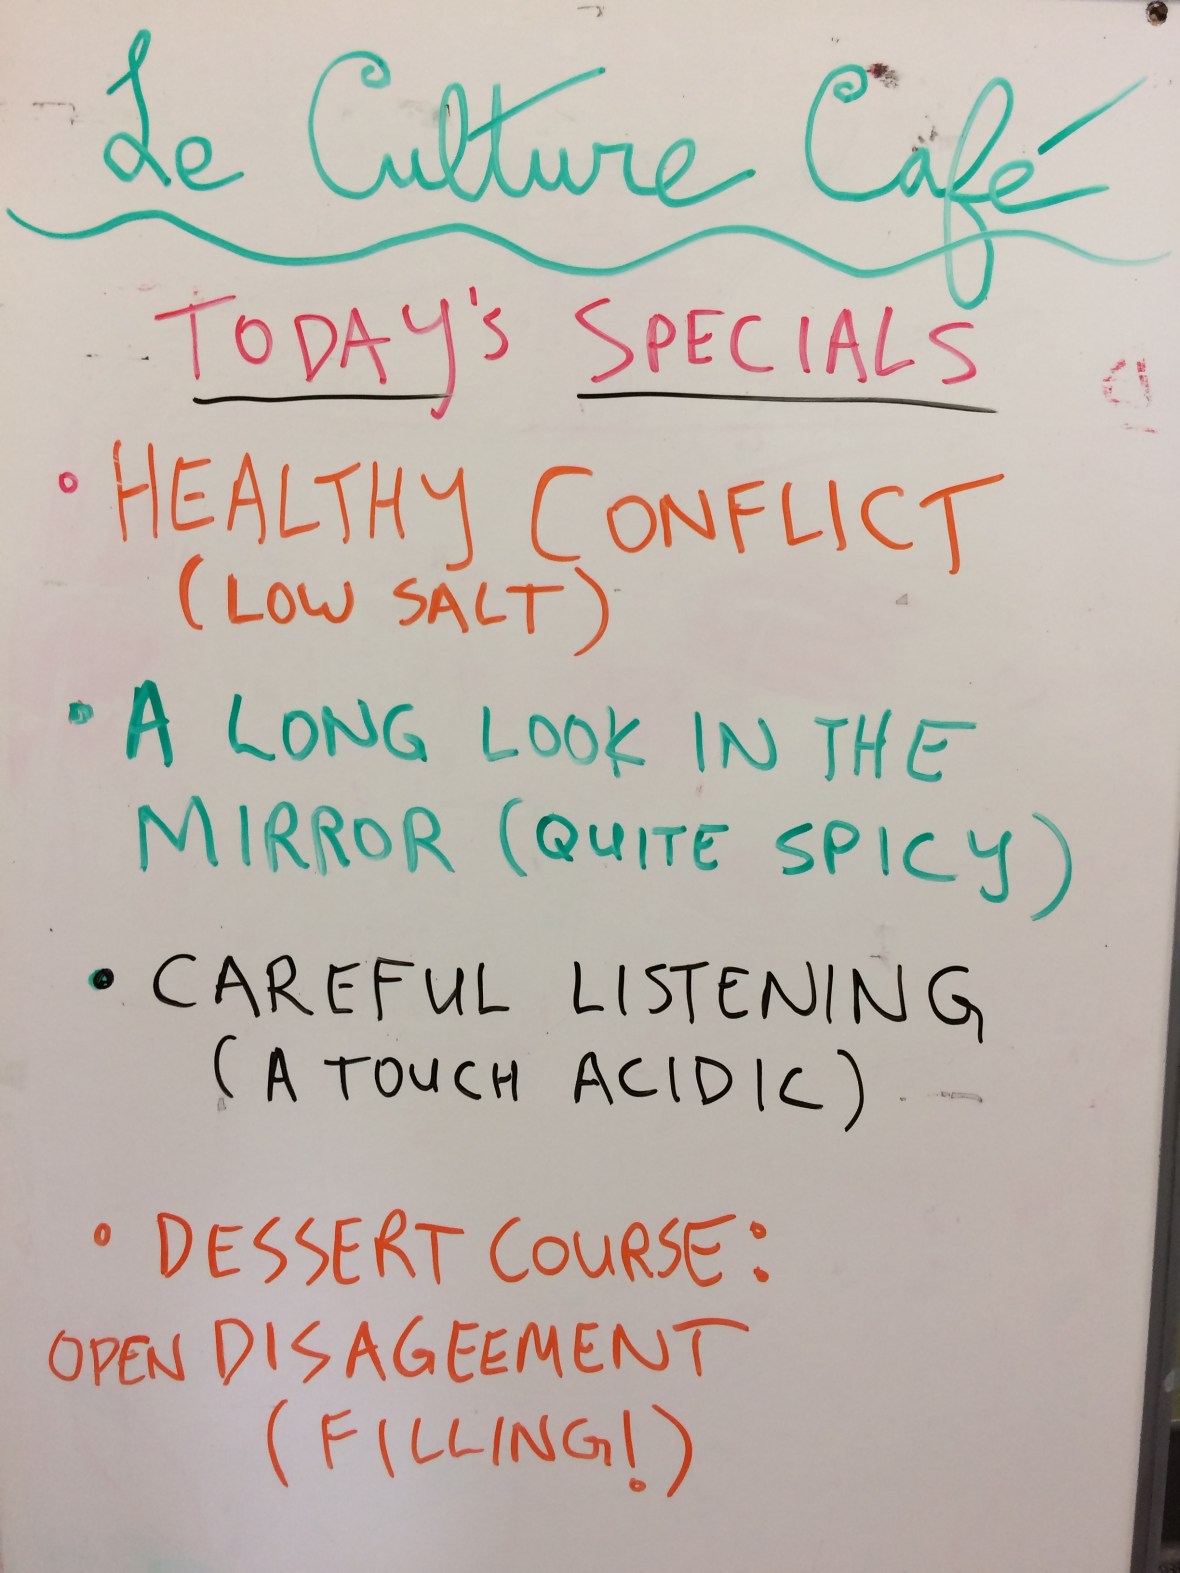 Le Culture Café
TODAY'S SPECIALS
• HEALTHY CONFLICT
(LOW SALT)
• A LONG LOOK IN THE
MIRROR (QUITE SPICY)
• CAREFUL LISTENING
(A TOUCH ACIDIC)
• DESSERT COURSE:
OPEN DISAGEEMENT
(FILLING!)